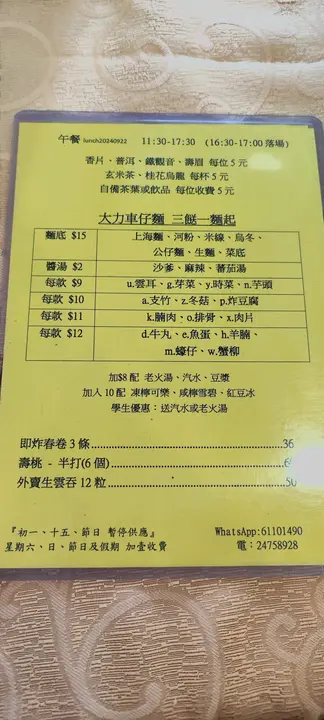 午餐 lunch20240922 11:30-17:30 (16:30-17:00落場)
香片、普洱、鐵觀音、壽眉 每位5元
玄米茶、桂花烏龍 每杯5元
自備茶葉或飲品 每位收費5元
大力車仔麵 三餸一麵起
麵底 $15 上海麵、河粉、米線、烏冬、
公仔麵、生麵、菜底
醬湯 $2 沙爹、麻辣、蕃茄湯
每款 $9 u.雲耳、g.芽菜、y.時菜、n.芋頭
每款 $10 a.支竹、z.冬菇、p.炸豆腐
每款 $11 k.腩肉、o.排骨、x.肉片
每款 $12 d.牛丸、e.魚蛋、h.羊腩、
m.蠔仔、w.蟹柳
加$8配 老火湯、汽水、豆漿
加入10配 凍檸可樂、咸檸雪碧、紅豆冰
學生優惠：送汽水或老火湯
即炸春卷3條 36
壽桃 - 半打(6個)
外賣生雲吞12粒 50
『初一、十五、節日 暫停供應』 WhatsApp:61101490
星期六、日、節日及假期 加壹收費 電：24758928